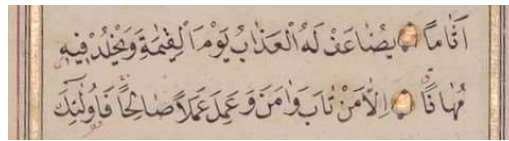 اَثَاماً يُضَاعَفْ لَهُ الْعَذَابُ يَوْمَ الْقِيٰمَةِ وَيَخْلُدْ فِيهِ
مُهَاناً اِلَّا مَنْ تَابَ وَاٰمَنَ وَعَمِلَ عَمَلاً صَالِحاً فَاُولٰٓئِكَ